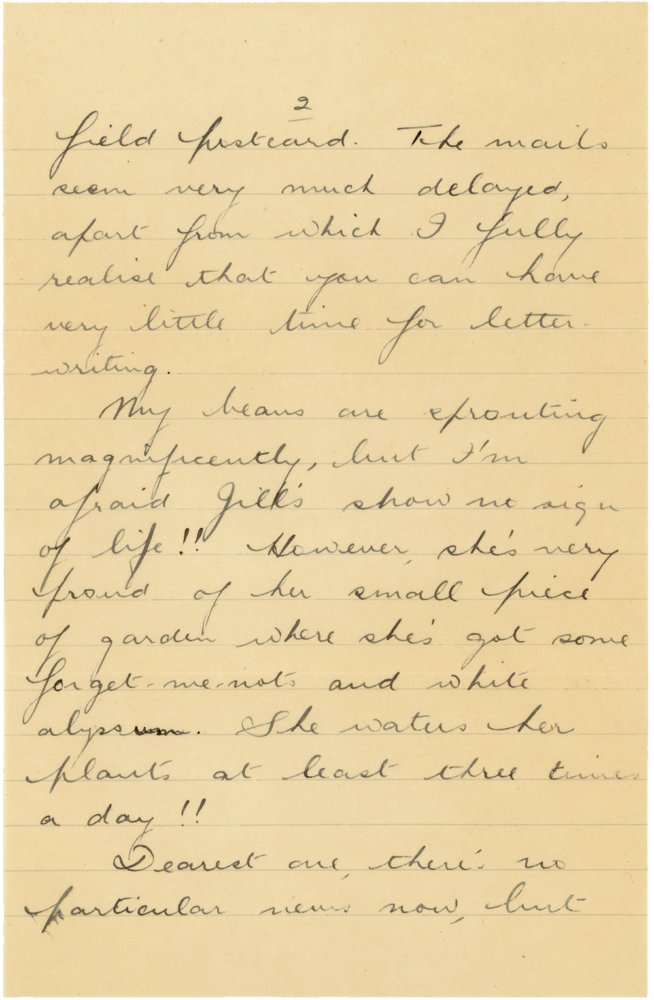 2
field postcard. The mails
seem very much delayed,
apart from which I fully
realise that you can have
very little time for letter-
writing.
My beans are sprouting
magnificently, but I'm
afraid Jill's show no sign
of life!! However, she's very
proud of her small piece
of garden where she's got some
forget-me-nots and white
alyssum. She waters her
plants at least three times
a day!!
Dearest one, there's no
particular news now, but